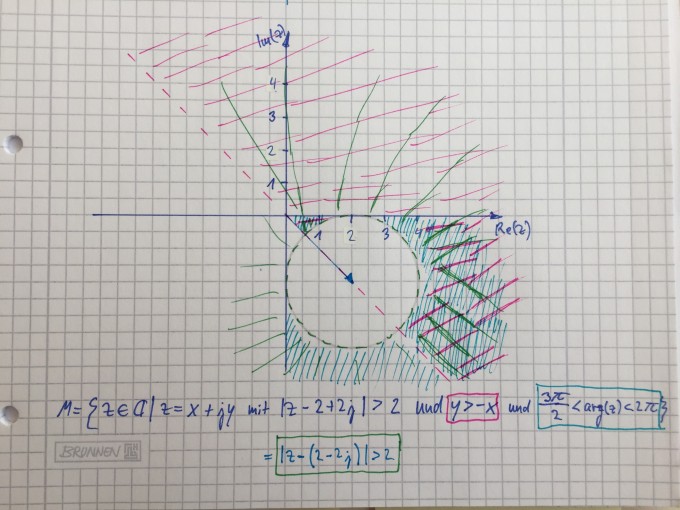 Im(z)
4
3
2
1
1 2 3 4 Re(z)
M = {z ∈ ℂ | z = x + jy mit |z - 2 + 2j| > 2 und y > -x und 3π/2 < arg(z) < 2π}
BRUNNEN
= |z - (2 - 2j)| > 2